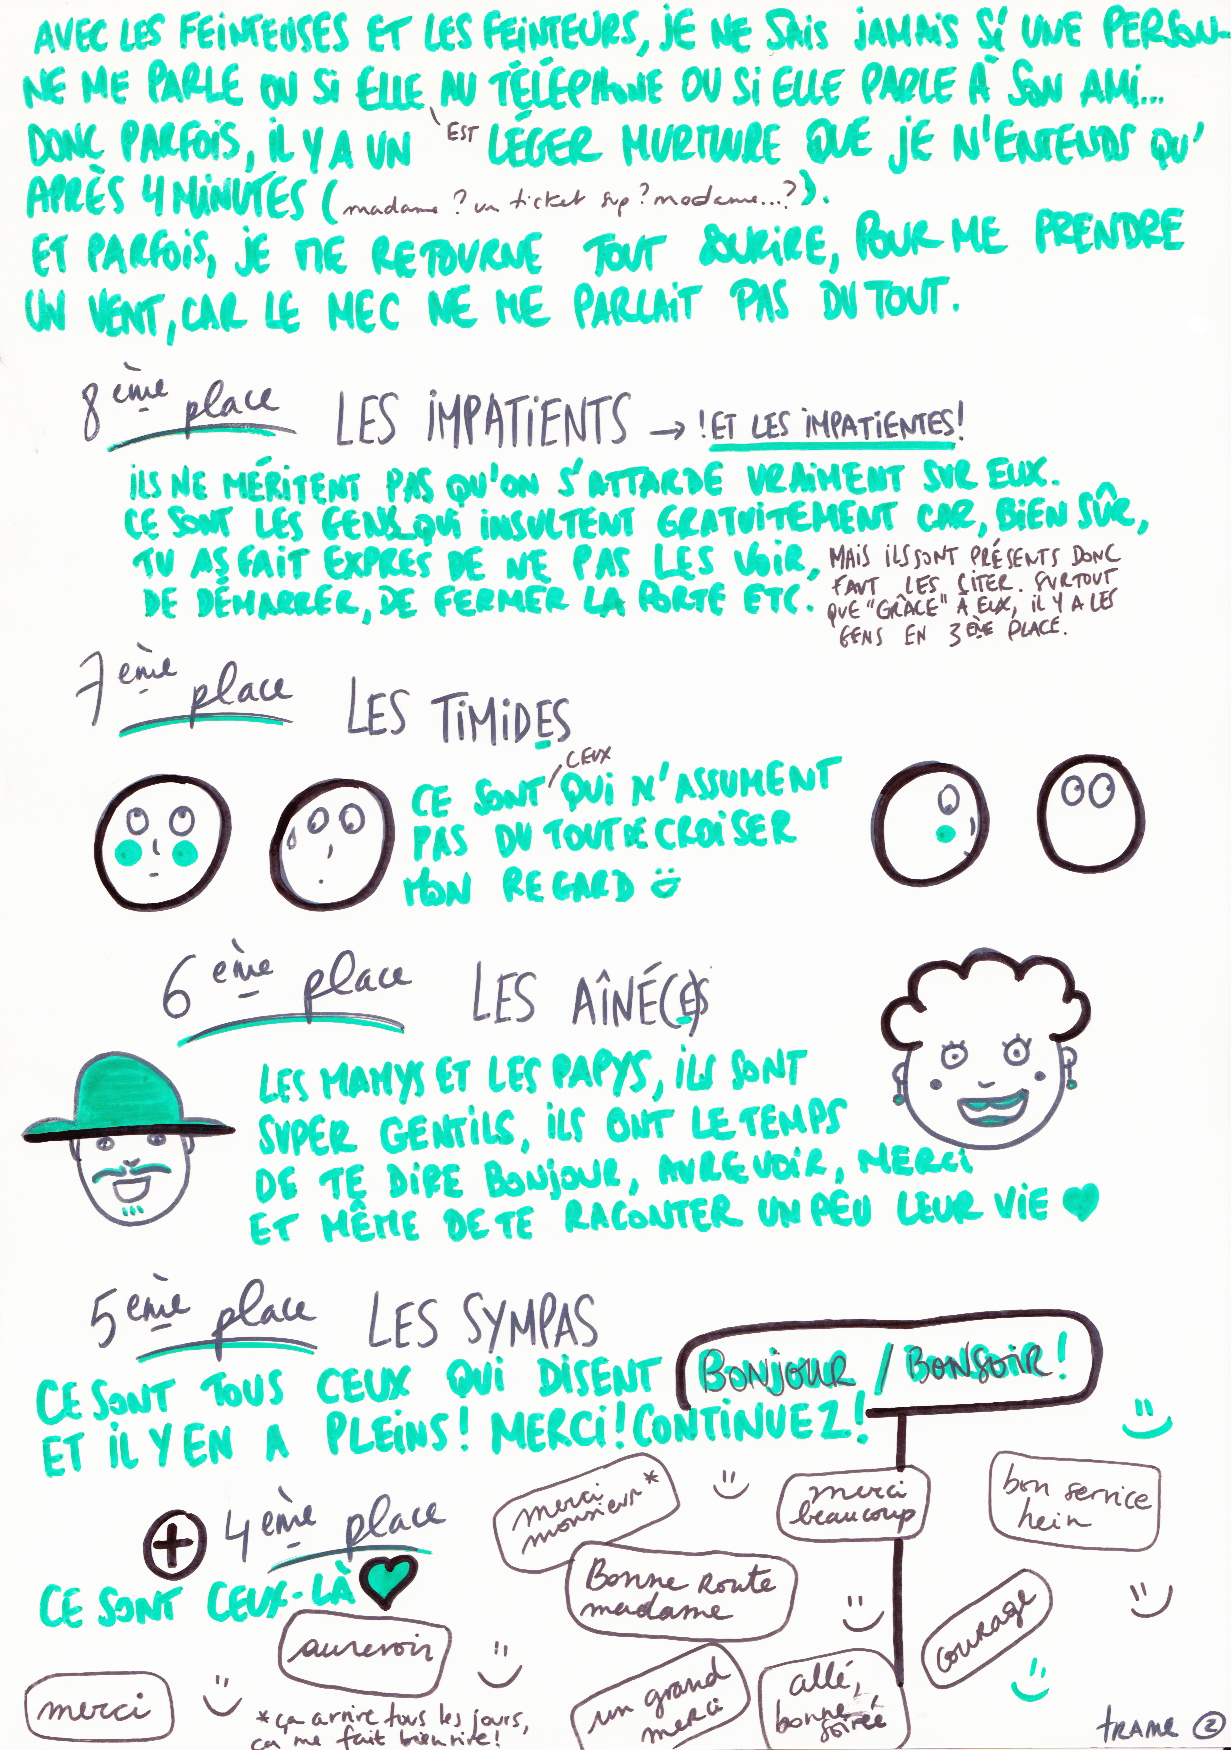 AVEC LES FEINTEUSES ET LES FEINTEURS, JE NE SAIS JAMAIS SI UNE PERSON-
NE ME PARLE OU SI ELLE AU TÉLÉPHONE OU SI ELLE PARLE À SON AMI...
EST
DONC PARFOIS, IL Y A UN LÉGER MURMURE QUE JE N'ENTENDS QU'
APRÈS 4 MINUTES (madame ? un ticket svp ? madame...?).
ET PARFOIS, JE ME RETOURNE TOUT SOURIRE, POUR ME PRENDRE
UN VENT, CAR LE MEC NE ME PARLAIT PAS DU TOUT.
8ème place LES IMPATIENTS → !ET LES IMPATIENTES!
ILS NE MÉRITENT PAS QU'ON S'ATTARDE VRAIMENT SUR EUX.
CE SONT LES GENS QUI INSULTENT GRATUITEMENT CAR, BIEN SÛR,
TU AS FAIT EXPRES DE NE PAS LES VOIR,
DE DÉMARRER, DE FERMER LA PORTE ETC.
MAIS ILS SONT PRÉSENTS DONC
FAUT LES CITER. SURTOUT
QUE "GRÂCE" A EUX, IL Y A LES
GENS EN 3ÈME PLACE.
7ème place LES TIMIDES
CEUX
CE SONT QUI N'ASSUMENT
PAS DU TOUT DE CROISER
MON REGARD
6ème place LES AÎNÉ(E)S
LES MAMYS ET LES PAPYS, ILS SONT
SUPER GENTILS, ILS ONT LE TEMPS
DE TE DIRE BONJOUR, AUREVOIR, MERCI
ET MÊME DE TE RACONTER UN PEU LEUR VIE ♥
5ème place LES SYMPAS
CE SONT TOUS CEUX QUI DISENT BONJOUR / BONSOIR !
ET IL Y EN A PLEINS ! MERCI ! CONTINUEZ !
+ 4ème place
CE SONT CEUX-LÀ ♥
merci
monsieur*
merci
beaucoup
bon service
hein
Bonne Route
madame
courage
aurevoir
merci
un grand
merci
allé,
bonne
soirée
*ça arrive tous les jours,
ça me fait bien rire !
TRAME 2